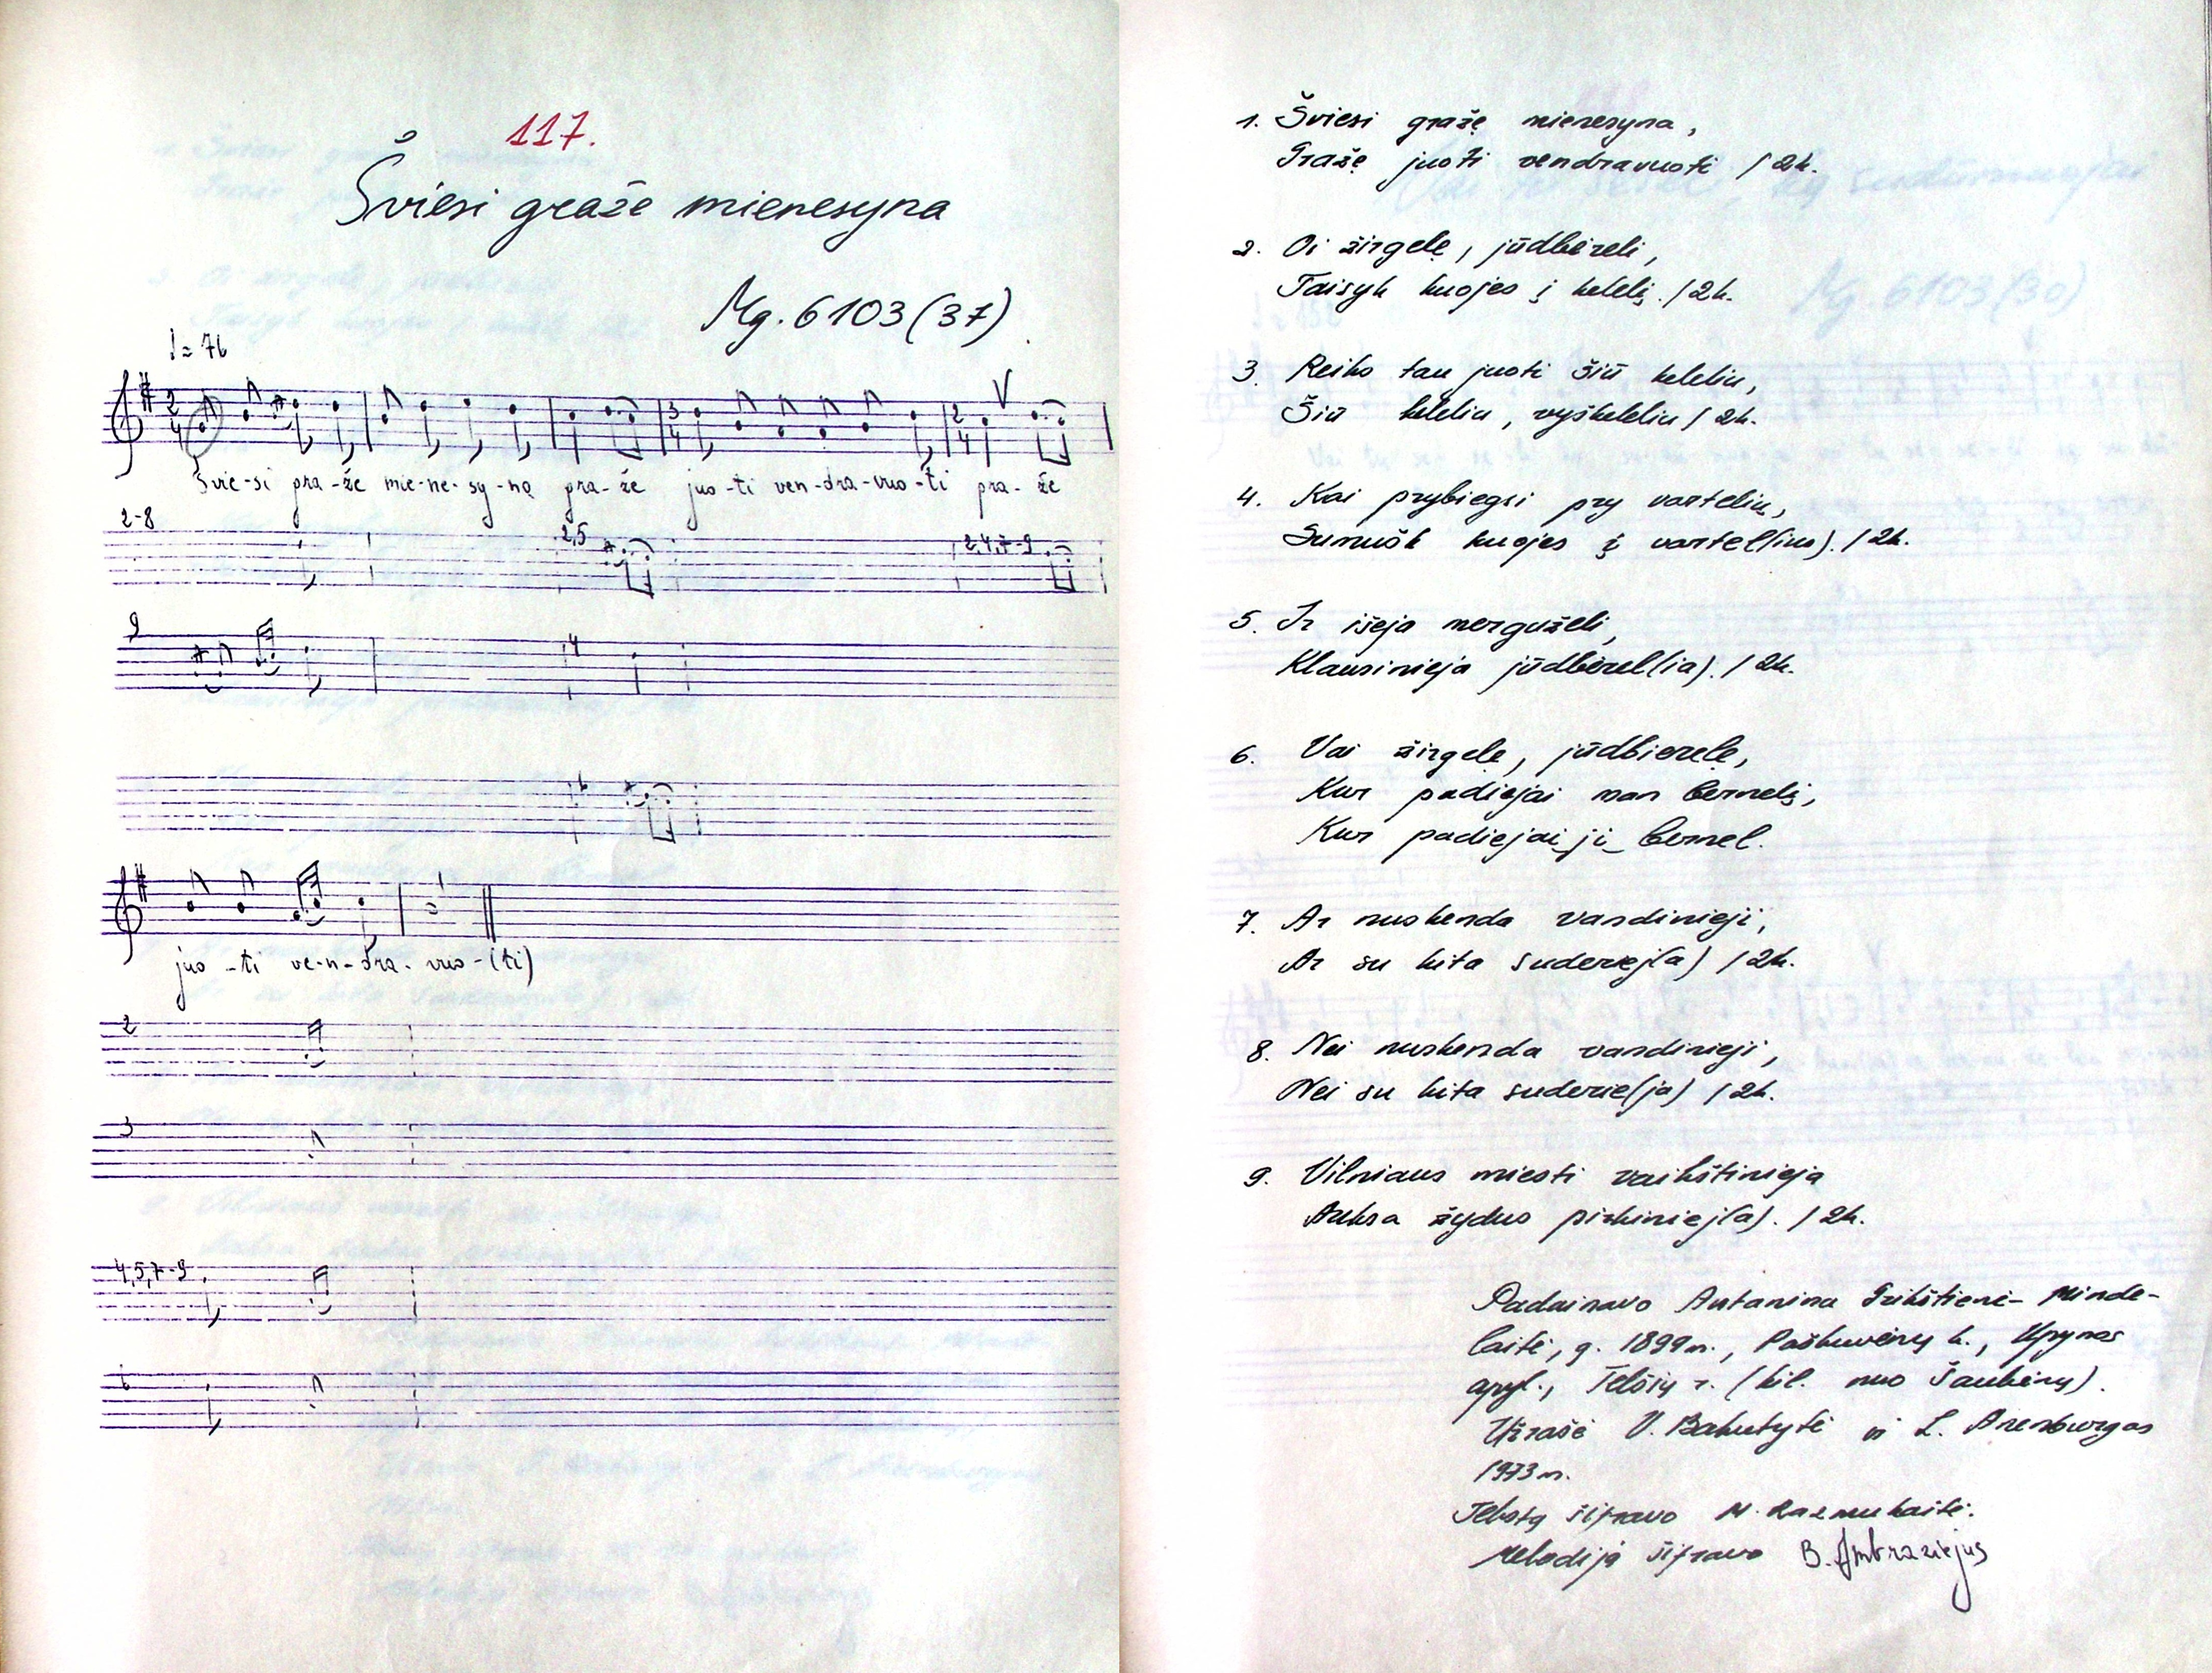 117.
Šviesi graže mienesyna
Mg. 6103 (37)
♩ = 76
Švie-si gra-že mie-ne-sy-na gra-že juo-ti ven-dra-vuo-ti gra-že
2-8 2,5 2,4,7-9
9 4
6
juo-ti ve-n-dra-vuo-(ti)
2
3
4,5,7-9
6
1. Šviesi gražę mienesyna,
Gražę juoti vendravuoti / 2k.
2. Oi žirgelę, jūdbėreli,
Taisyk kuojes į kelelį. / 2k.
3. Reiko tau juoti šiū keleliu,
Šiū keleliu, vyškeleliu / 2k.
4. Kai prybiegsi pry varteliu,
Sumušk kuojes į vartel(ius). / 2k.
5. Ir išeja merguželi,
Klausinieja jūdbėrel(ia). / 2k.
6. Vai žirgelę, jūdbierelę,
Kur padiejai man bernelį,
Kur padiejai ji bernel.
7. Ar nuskenda vandinieji,
Ar su kita suderiej(a) / 2k.
8. Nei nuskenda vandinieji,
Nei su kita suderie(ja) / 2k.
9. Vilniaus miesti vaikštinieja
Auksa žydus pirkiniej(a). / 2k.
Padainavo Antanina Grikštienė- Minde-
laitė, g. 1899 m., Paškuvėnų k., Upynos
apyl., Telšių r. (kil. nuo Šaukėnų).
Užrašė V. Bakutytė ir L. Arensburgas
1973 m.
Tekstą šifravo M. Razmukaitė.
Melodiją šifravo B. Ambraziejus